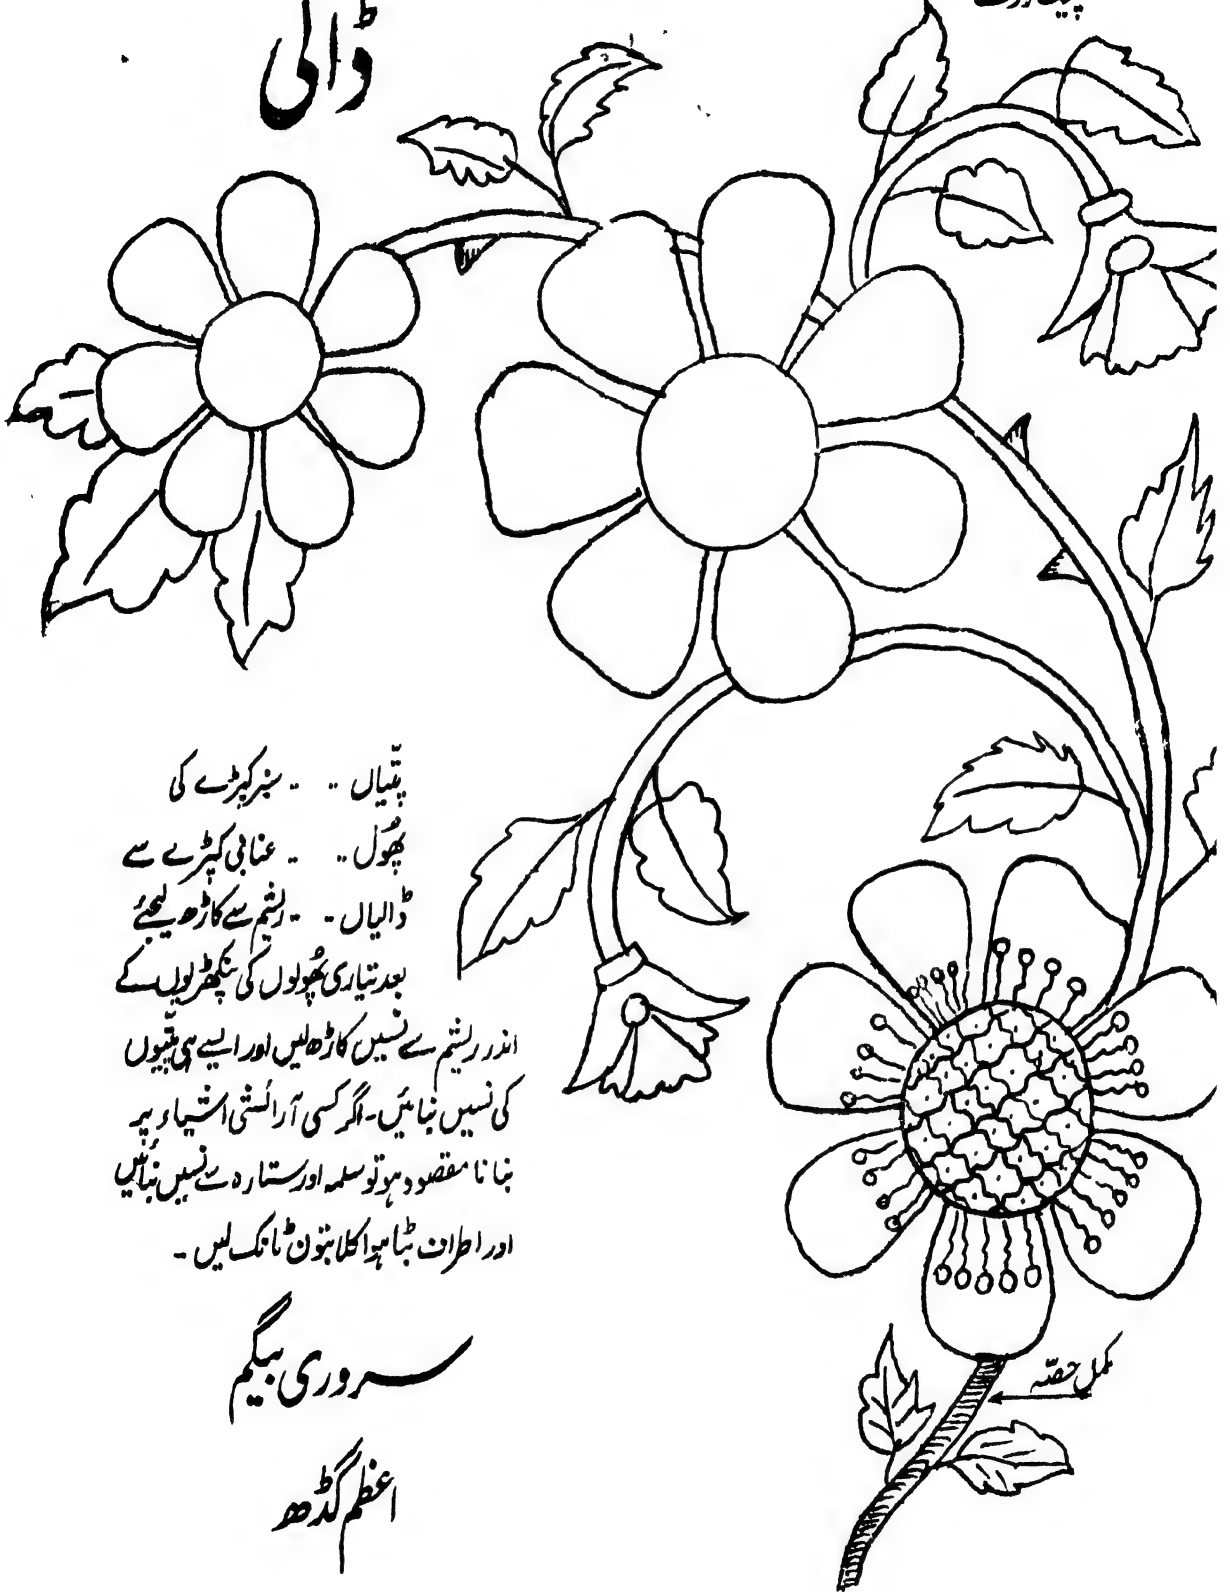 ڈالی
پتّیاں .. .. سبز کپڑے کی
پھُول .. .. عنابی کپڑے سے
ڈالیاں .. .. ریشم سے کاڑھ لیجئے
بعد تیاری پھُولوں کی پنکھڑیوں کے
اندر ریشم سے نسیں کاڑھ لیں اور ایسے ہی پتّیوں
کی نسیں بنائیں۔ اگر کسی آرائشی اشیاء پر
بنانا مقصود ہو تو سلمہ اور ستارہ سے نسیں بنائیں
اور اطراف بٹا ہوا کلابتون ٹانک لیں ۔
مکمل حصّہ
سروری بیگم
اعظم گڈھ